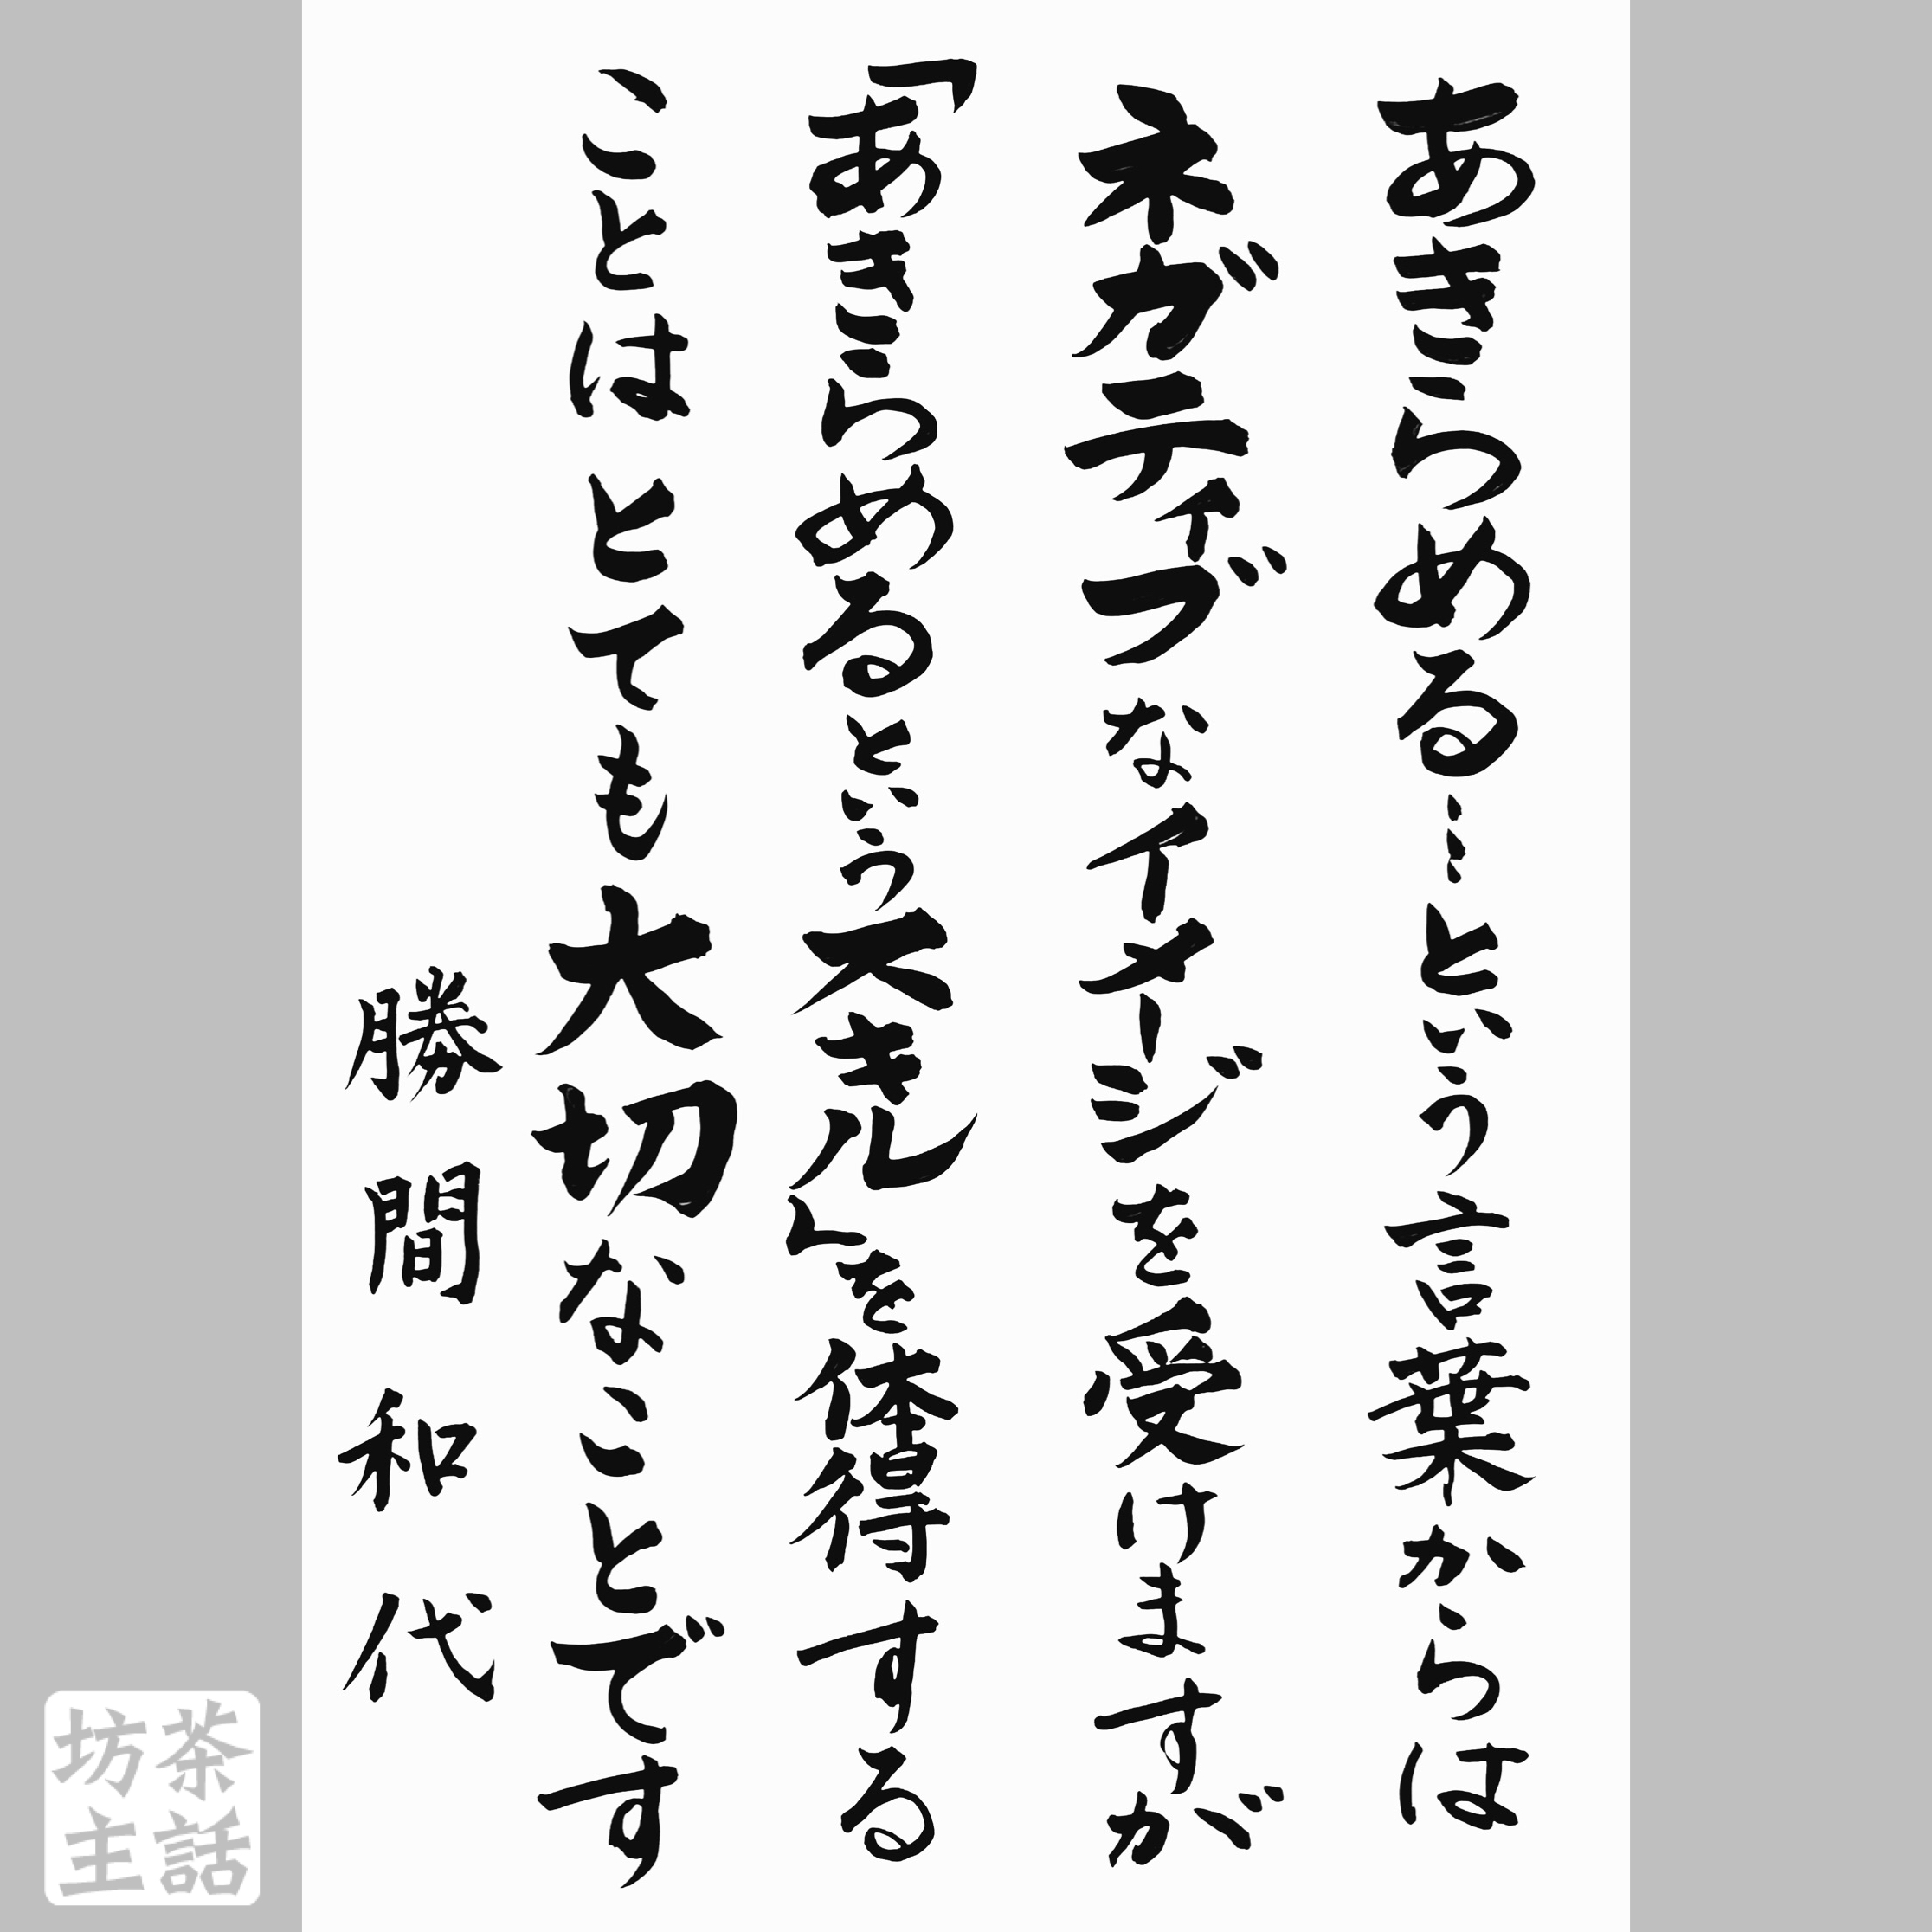 あきらめる…という言葉からは
ネガティブなイメージを受けますが
「あきらめるというスキル」を体得する
ことはとても大切なことです
勝間和代
茶話
坊主